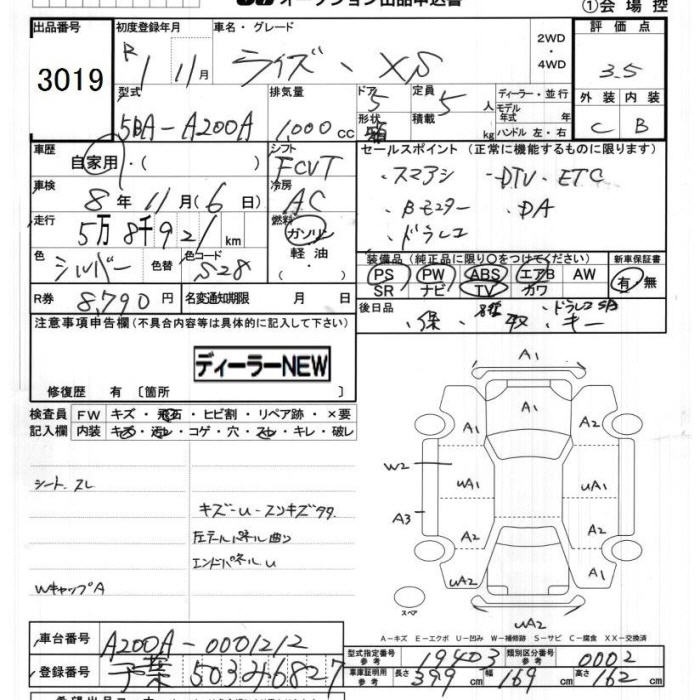 オークション出品申込書
①会場控
出品番号 3019
初度登録年月 R 1 11月
車名・グレード ライズ、XS
2WD・4WD
評価点 3.5
型式 5BA-A200A
排気量 1,000cc
ドア 5 形状
定員 5人 積載 kg
ディーラー・並行
モデル年式 年
ハンドル 左・右
外装 C 内装 B
車歴 自家用・( )
シフト FCVT
セールスポイント (正常に機能するものに限ります)
・スマアシ ・DTV・ETC
・Bモニター ・DA
・ドラレコ
車検 8年11月(6日)
冷房 AC
走行 5万8千921km
燃料 ガソリン・軽油・( )
色 シルバー 色替 色コード S28
装備品 (純正品に限り○をつけてください)
PS PW ABS エアB AW
SR ナビ TV カワ
新車保証書 有・無
R券 8,790円 名変通知期限 月 日
後日品 ・保 ・取 ・キー ドラレコSD
注意事項申告欄 (不具合内容等は具体的に記入して下さい)
ディーラーNEW
修復歴 有 〔箇所 〕
検査員記入欄 FW キズ・飛石・ヒビ割・リペア跡・×要
内装 キズ・汚レ・コゲ・穴・スレ・キレ・破レ
シート スレ
キズ-U-スリキズタタ
左テールパネル曲り
エンドパネル U
WキャップA
A1
A1
A2 A2
W2
UA1 UA1
A3
A2 A2
UA2 A1
スペア
UA2
A-キズ E-エクボ U-凹み W-補修跡 S-サビ C-腐食 XX-交換済
車台番号 A200A-0001212
型式指定番号 参考 19403 類別区分番号 参考 0002
登録番号 千葉 503 み 6827
車庫証明用 参考 長さ 399cm 幅 169cm 高さ 162cm